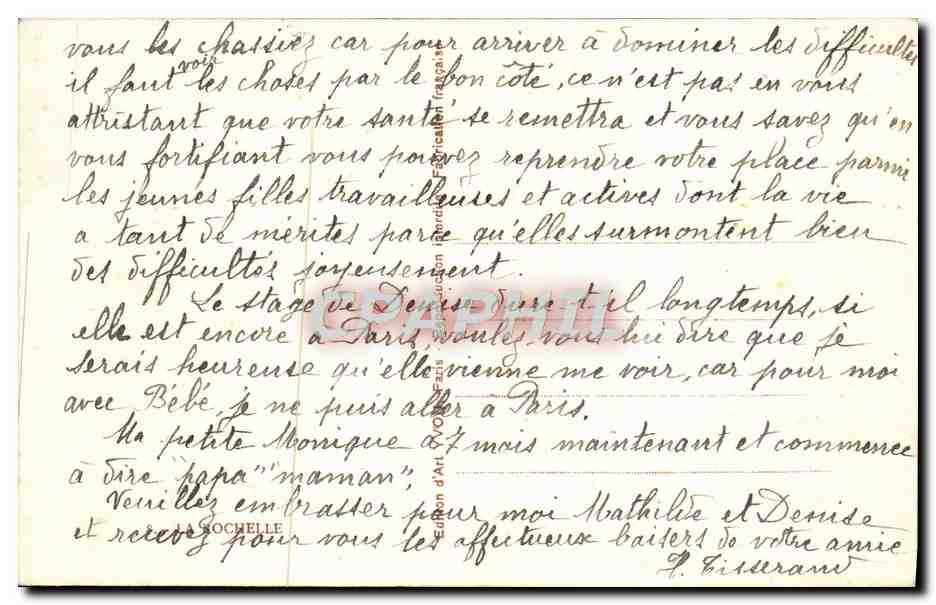 vous les chassiez car pour arriver à dominer les difficultés
il faut voir les choses par le bon côté, ce n'est pas en vous
attristant que votre santé se remettra et vous savez qu'en
vous fortifiant vous pouvez reprendre votre place parmi
les jeunes filles travailleuses et actives dont la vie
a tant de mérites parce qu'elles surmontent bien
des difficultés joyeusement.
Le stage de Denise dure t'il longtemps, si
elle est encore à Paris, voulez vous lui dire que je
serais heureuse qu'elle vienne me voir, car pour moi
avec Bébé, je ne puis aller à Paris.
Ma petite Monique a 7 mois maintenant et commence
à dire "papa" "maman",
Veuillez embrasser pour moi Mathilde et Denise
et recevez pour vous les affectueux baisers de votre amie
H. Tisserand
LA ROCHELLE
Edition d'Art YVON Paris Reproduction interdite Fabrication française
CPAPHIL